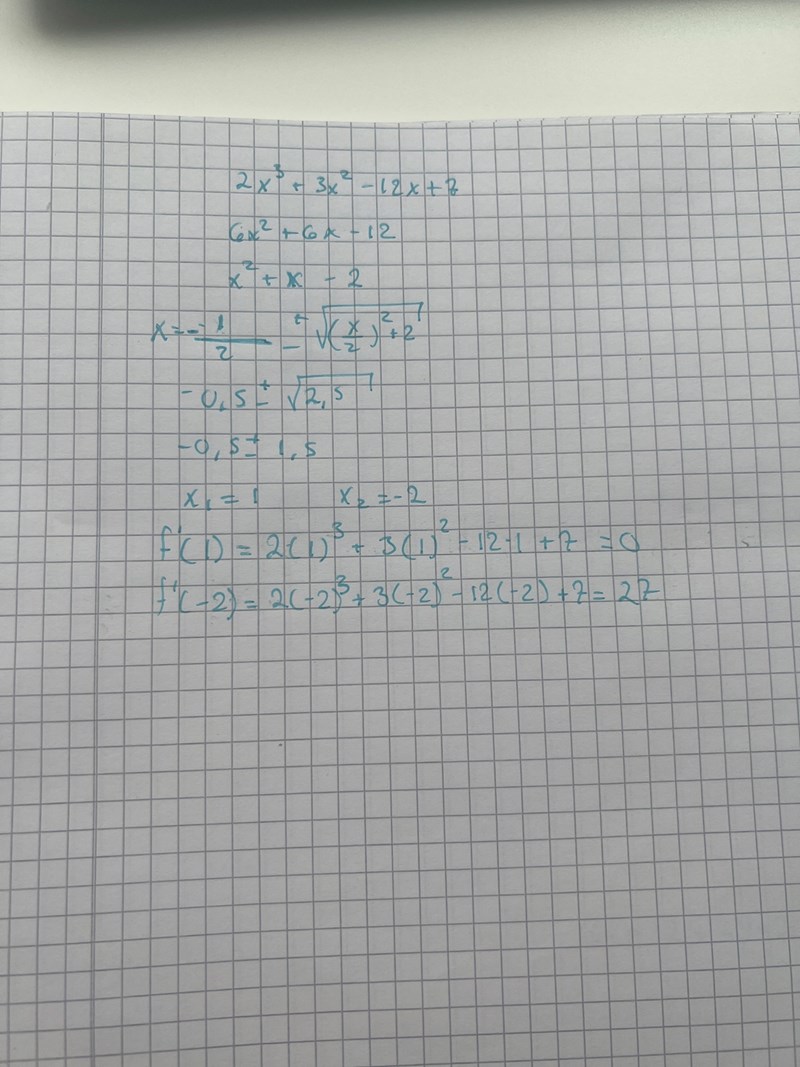 2x³ + 3x² - 12x + 7
6x² + 6x - 12
x² + x - 2
x = - 1/2 ± √((x/2)² + 2)
- 0,5 ± √2,5
- 0,5 ± 1,5
x₁ = 1 x₂ = -2
f'(1) = 2(1)³ + 3(1)² - 12·1 + 7 = 0
f'(-2) = 2(-2)³ + 3(-2)² - 12(-2) + 7 = 27